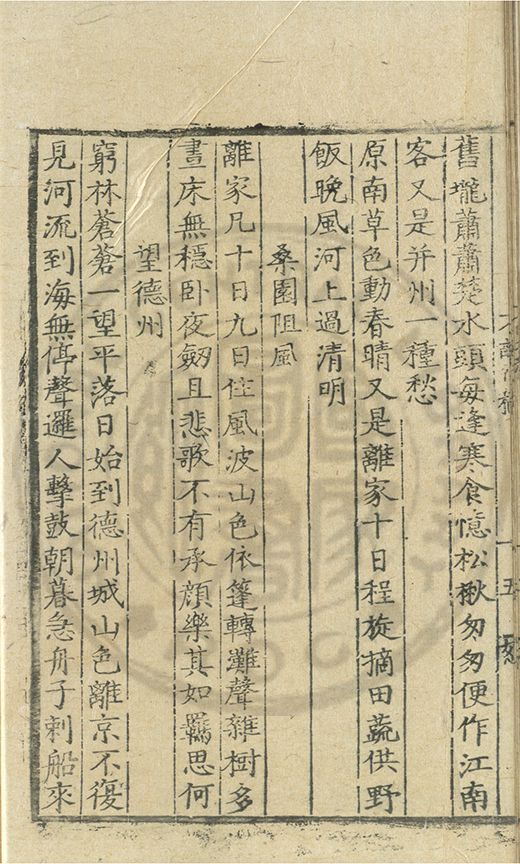 舊壠蕭蕭楚水頭每逢寒食憶松楸匆匆便作江南
客又是并州一種愁
原南草色動春晴又是離家十日程旋摘田蔬供野
飯晚風河上過清明
桑園阻風
離家凡十日九日住風波山色依篷轉灘聲雜樹多
晝床無穩卧夜劒且悲歌不有承顔樂其如羈思何
望德州
窮林蒼蒼一望平落日始到德州城山色離京不復
見河流到海無停聲邏人擊鼓朝暮急舟子刺船來